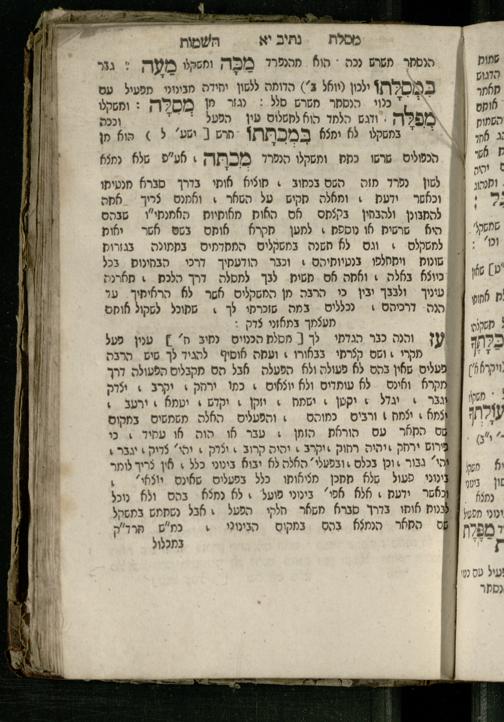 מסלת נתיב יא השמות
הנסתר משרש נכה · הוא מהנפרד מַכָּה ומשקלו מַעָה : גבר
בִּמְסִלָּתוֹ ילכון (יואל ב') הדומה ללשון יחידה מבינוני מפעיל עם
כנוי הנסתר משרש סלל : נגזר מן מְסִלָּה : ומשקלו
מְפִלָּה , ודגש הלמד הוא לתשלום עין הפעל וככה
במשקלו לא ימלא בִּמְכִתָּתוֹ חרש [ ישע' ל ) הוא מן
הכפולים שרשו כתת ומשקלו הנפרד מְכִתָּה , אע"פ שלא נמצא
לשון נפרד מזה השם בכתוב , תוציא אותו בדרך סברא מנטיתו
וכאשר ידעת , ומאלה תקיש על השאר , ואמנם צריך אתה
להתבונן ולהבחין בקצתם אם האות מאותיות האמנתי"ו שבהם
היא שרשית או נוספת , למען תקרא אותם בשם אשר יאות
למשקלם , וגם לא תשגה במשקלים המתדמים בתמונה בגזרות
שונות ויתחלפו בנטיותיהם , וכבר הודעתיך דרכי הבחינות בכל
כיוצא באלה , ואתה אם תשית לבך למסלה דרך הלכת , תארנה
עיניך ולבבך יבין כי הרבה מן המשקלים אשר לא הראיתיך עד
הנה דרכיהם , נכללים במה שזכרתי לך , שתוכל לשקול אותם
מעלמך במאזני צדק :
עז והנה כבר הגדתי לך [ מסלת הבנינים נתיב ח' ] ענין פעל
מקרי , ושם קצרתי בבאורו , ועתה אוסיף להגיד לך שיש הרבה
פעלים שאין בהם לא פעולה ולא הפעלה אבל הם מקבלים הפעולה דרך
מקרא ואינם לא עומדים ולא יוצאים , כמו ירחק , יקרב , יצדק
יגבר , יגדל , יקטן , ישמח , יזקן , יקדש , יטמא , ירעב ,
יצמא , יצמח , ורבים כמוהם , והפעלים האלה משמשים במקום
שם התאר עם הוראת הזמן , עבר או הוה או עתיד , כי
פירוש ירחק , יהיה רחוק , יקרב , יהיה קרוב , יצדק , יהי' צדיק , יגבר ,
יהי' גבור , וכן בכלם , ובפעלי' האלה לא יבוא בינוני כלל , אין צריך לומר
בינוני פעול שלא תתכן מציאותו כלל בפעלים שאינם יוצאי' ,
וכאשר ידעת , אלא אפי' בינוני פועל , לא נמצא בהם ולא נוכל
לבנות אותו בדרך סברא משאר חלקי הפעל , אבל נשתמש במשקל
שם התאר הנמצא בהם במקום הבינוני , כמ"ש הרד"ק
במכלול